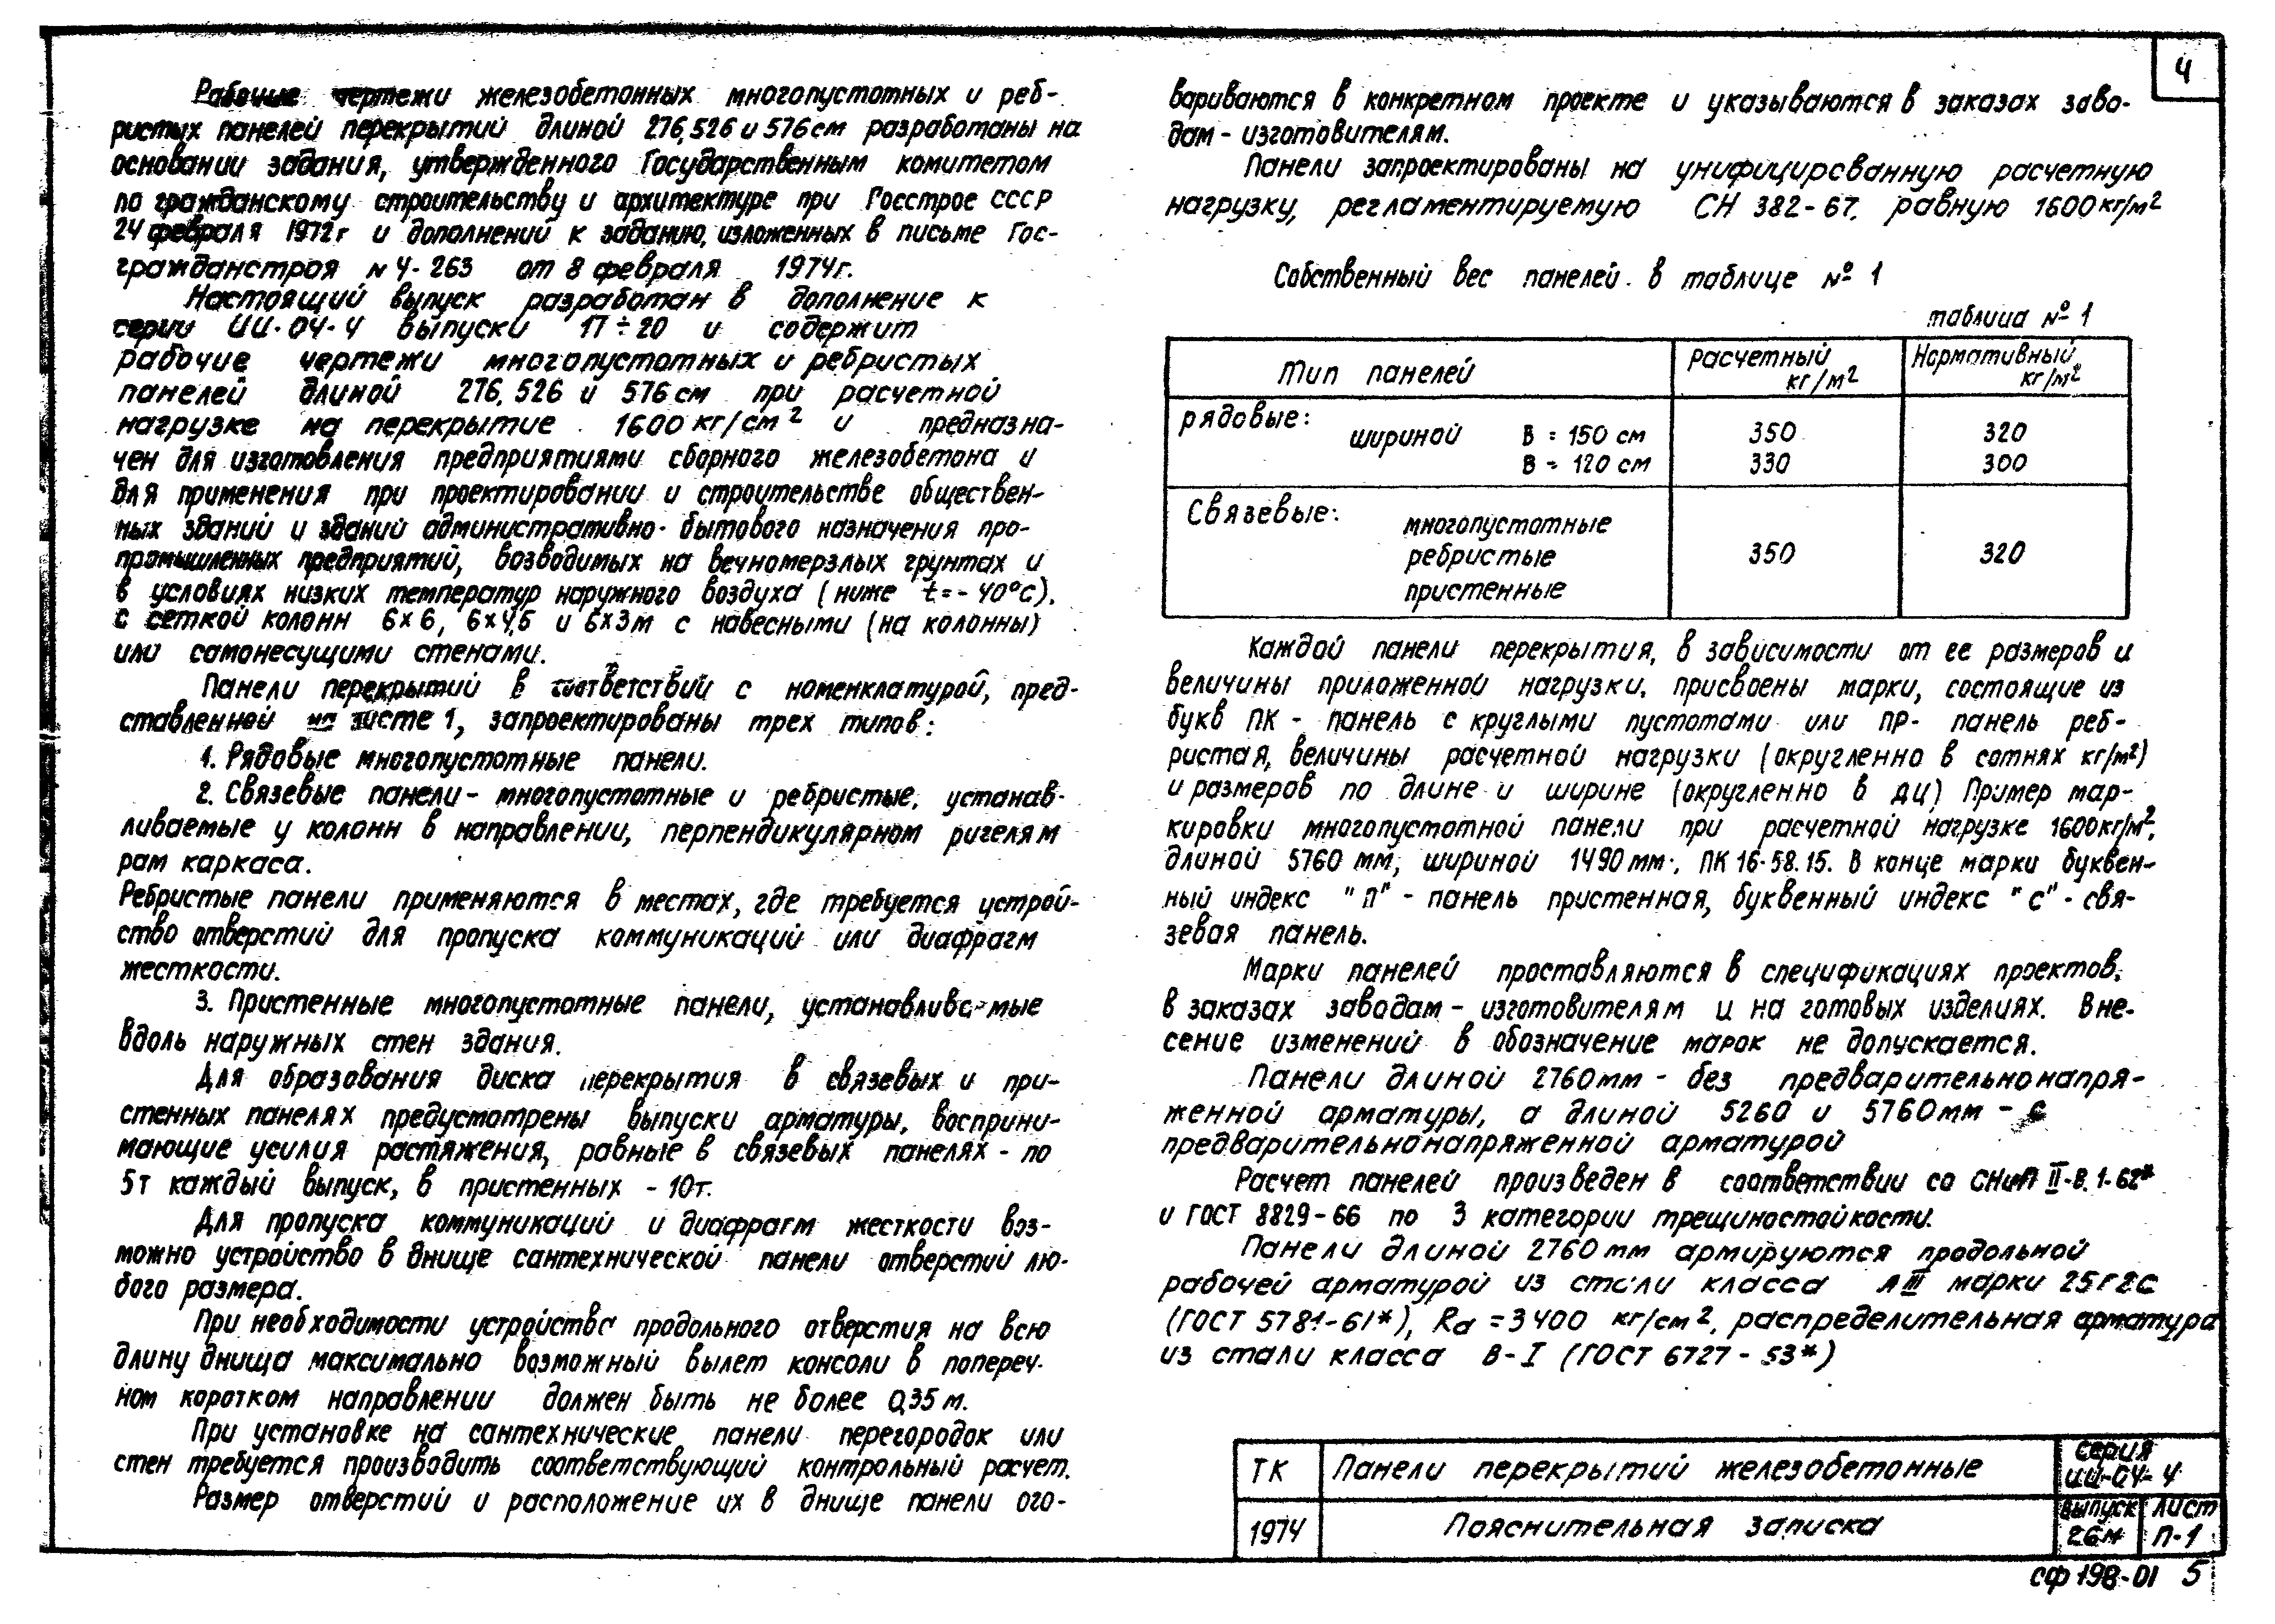 4
Рабочие чертежи железобетонных многопустотных и реб-
ристых панелей перекрытий длиной 276,526 и 576 см разработаны на
основании задания, утвержденного Государственным комитетом
по гражданскому строительству и архитектуре при Госстрое СССР
24 февраля 1972г и дополнений к заданию, изложенных в письме Гос-
гражданстроя №4-263 от 8 февраля 1974г.
Настоящий выпуск разработан в дополнение к
серии ИИ-04-4 выпуски 17÷20 и содержит
рабочие чертежи многопустотных и ребристых
панелей длиной 276, 526 и 576 см при расчетной
нагрузке на перекрытие 1600 кг/см² и предназна-
чен для изготовления предприятиями сборного железобетона и
для применения при проектировании и строительстве обществен-
ных зданий и зданий административно-бытового назначения про-
промышленных предприятий, возводимых на вечномерзлых грунтах и
в условиях низких температур наружного воздуха (ниже t=-40°С),
с сеткой колонн 6×6, 6×4,5 и 6×3м с навесными (на колонны)
или самонесущими стенами.
Панели перекрытий в соответствий с номенклатурой, пред-
ставленной на листе 1, запроектированы трех типов:
1. Рядовые многопустотные панели.
2. Связевые панели - многопустотные и ребристые, устанав-
ливаемые у колонн в направлении, перпендикулярном ригелям
рам каркаса.
Ребристые панели применяются в местах, где требуется устрой-
ство отверстий для пропуска коммуникаций или диафрагм
жесткости.
3. Пристенные многопустотные панели, устанавливаемые
вдоль наружных стен здания.
Для образования диска перекрытия в связевых и при-
стенных панелях предусмотрены выпуски арматуры, восприни-
мающие усилия растяжения, равные в связевых панелях - по
5т каждый выпуск, в пристенных - 10т.
Для пропуска коммуникаций и диафрагм жесткости воз-
можно устройство в днище сантехнической панели отверстий лю-
бого размера.
При необходимости устройства продольного отверстия на всю
длину днища максимально возможный вылет консоли в попереч-
ном коротком направлении должен быть не более 0,35 м.
При установке на сантехнические панели перегородок или
стен требуется производить соответствующий контрольный расчет.
Размер отверстий и расположение их в днище панели ого-
вариваются в конкретном проекте и указываются в заказах заво-
дам - изготовителям.
Панели запроектированы на унифицированную расчетную
нагрузку, регламентируемую СН 382-67, равную 1600 кг/м²
Собственный вес панелей в таблице № 1
таблица № 1
Тип панелей Расчетный кг/м² Нормативный кг/м²
рядовые:
шириной В = 150 см 350 320
В = 120 см 330 300
Связевые:
многопустотные
ребристые 350 320
пристенные
Каждой панели перекрытия, в зависимости от ее размеров и
величины приложенной нагрузки, присвоены марки, состоящие из
букв ПК - панель с круглыми пустотами или ПР- панель реб-
ристая, величины расчетной нагрузки (округленно в сотнях кг/м²)
и размеров по длине и ширине (округленно в дц) Пример мар-
кировки многопустотной панели при расчетной нагрузке 1600кг/м²,
длиной 5760 мм, шириной 1490 мм: ПК 16-58.15. В конце марки буквен-
ный индекс "П" - панель пристенная, буквенный индекс "С" - свя-
зевая панель.
Марки панелей проставляются в спецификациях проектов,
в заказах заводам - изготовителям и на готовых изделиях. Вне-
сение изменений в обозначение марок не допускается.
Панели длиной 2760мм - без предварительнонапря-
женной арматуры, а длиной 5260 и 5760мм - с
предварительнонапряженной арматурой
Расчет панелей произведен в соответствии со СНиП II-В.1-62*
и ГОСТ 8829-66 по 3 категории трещиностойкости.
Панели длиной 2760 мм армируются продольной
рабочей арматурой из стали класса АIII марки 25Г2С
(ГОСТ 5781-61*), Ra = 3400 кг/см², распределительная арматура
из стали класса В-I (ГОСТ 6727-53*)
ТК Панели перекрытий железобетонные серия ИИ-04-4
1974 Пояснительная записка выпуск 26м лист П-1
сф 198-01 5